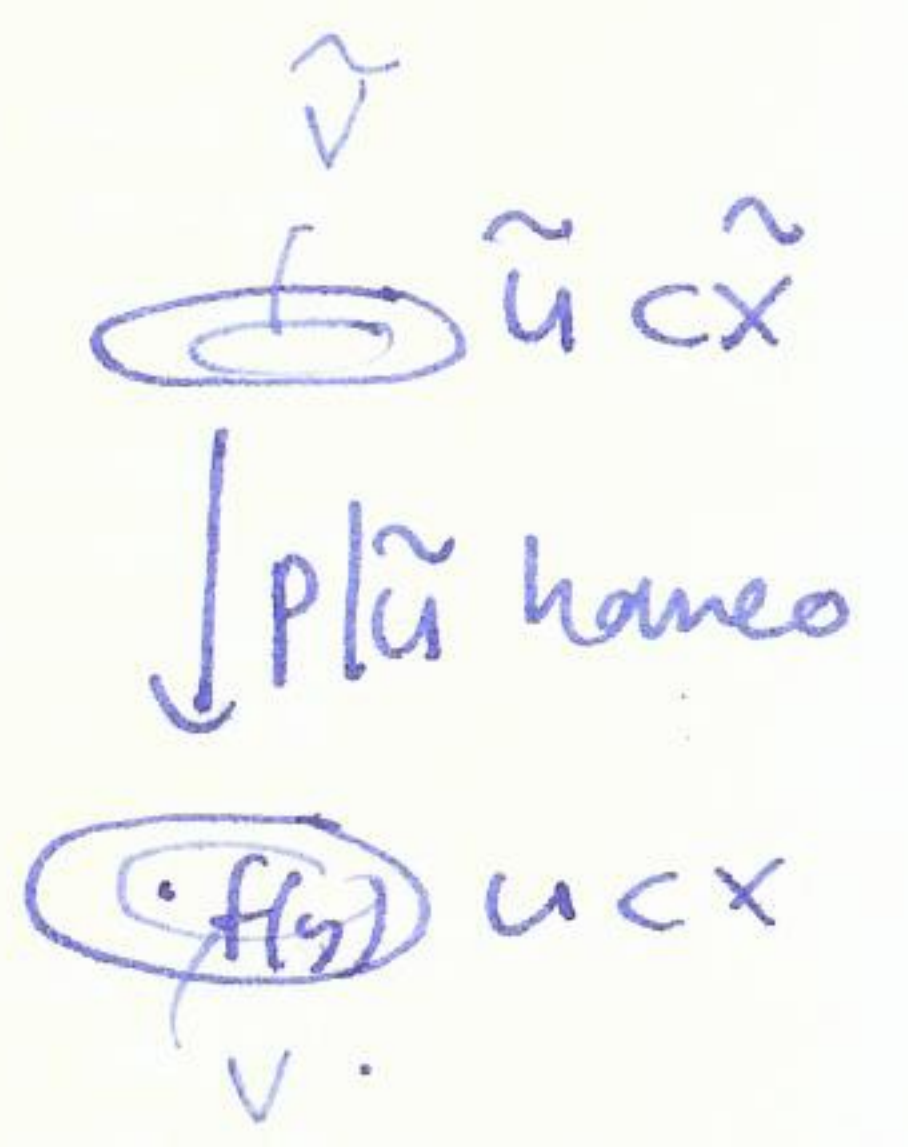 Ṽ
ũ ⊂ X̃
p|ũ homeo
f(y) u ⊂ X
V